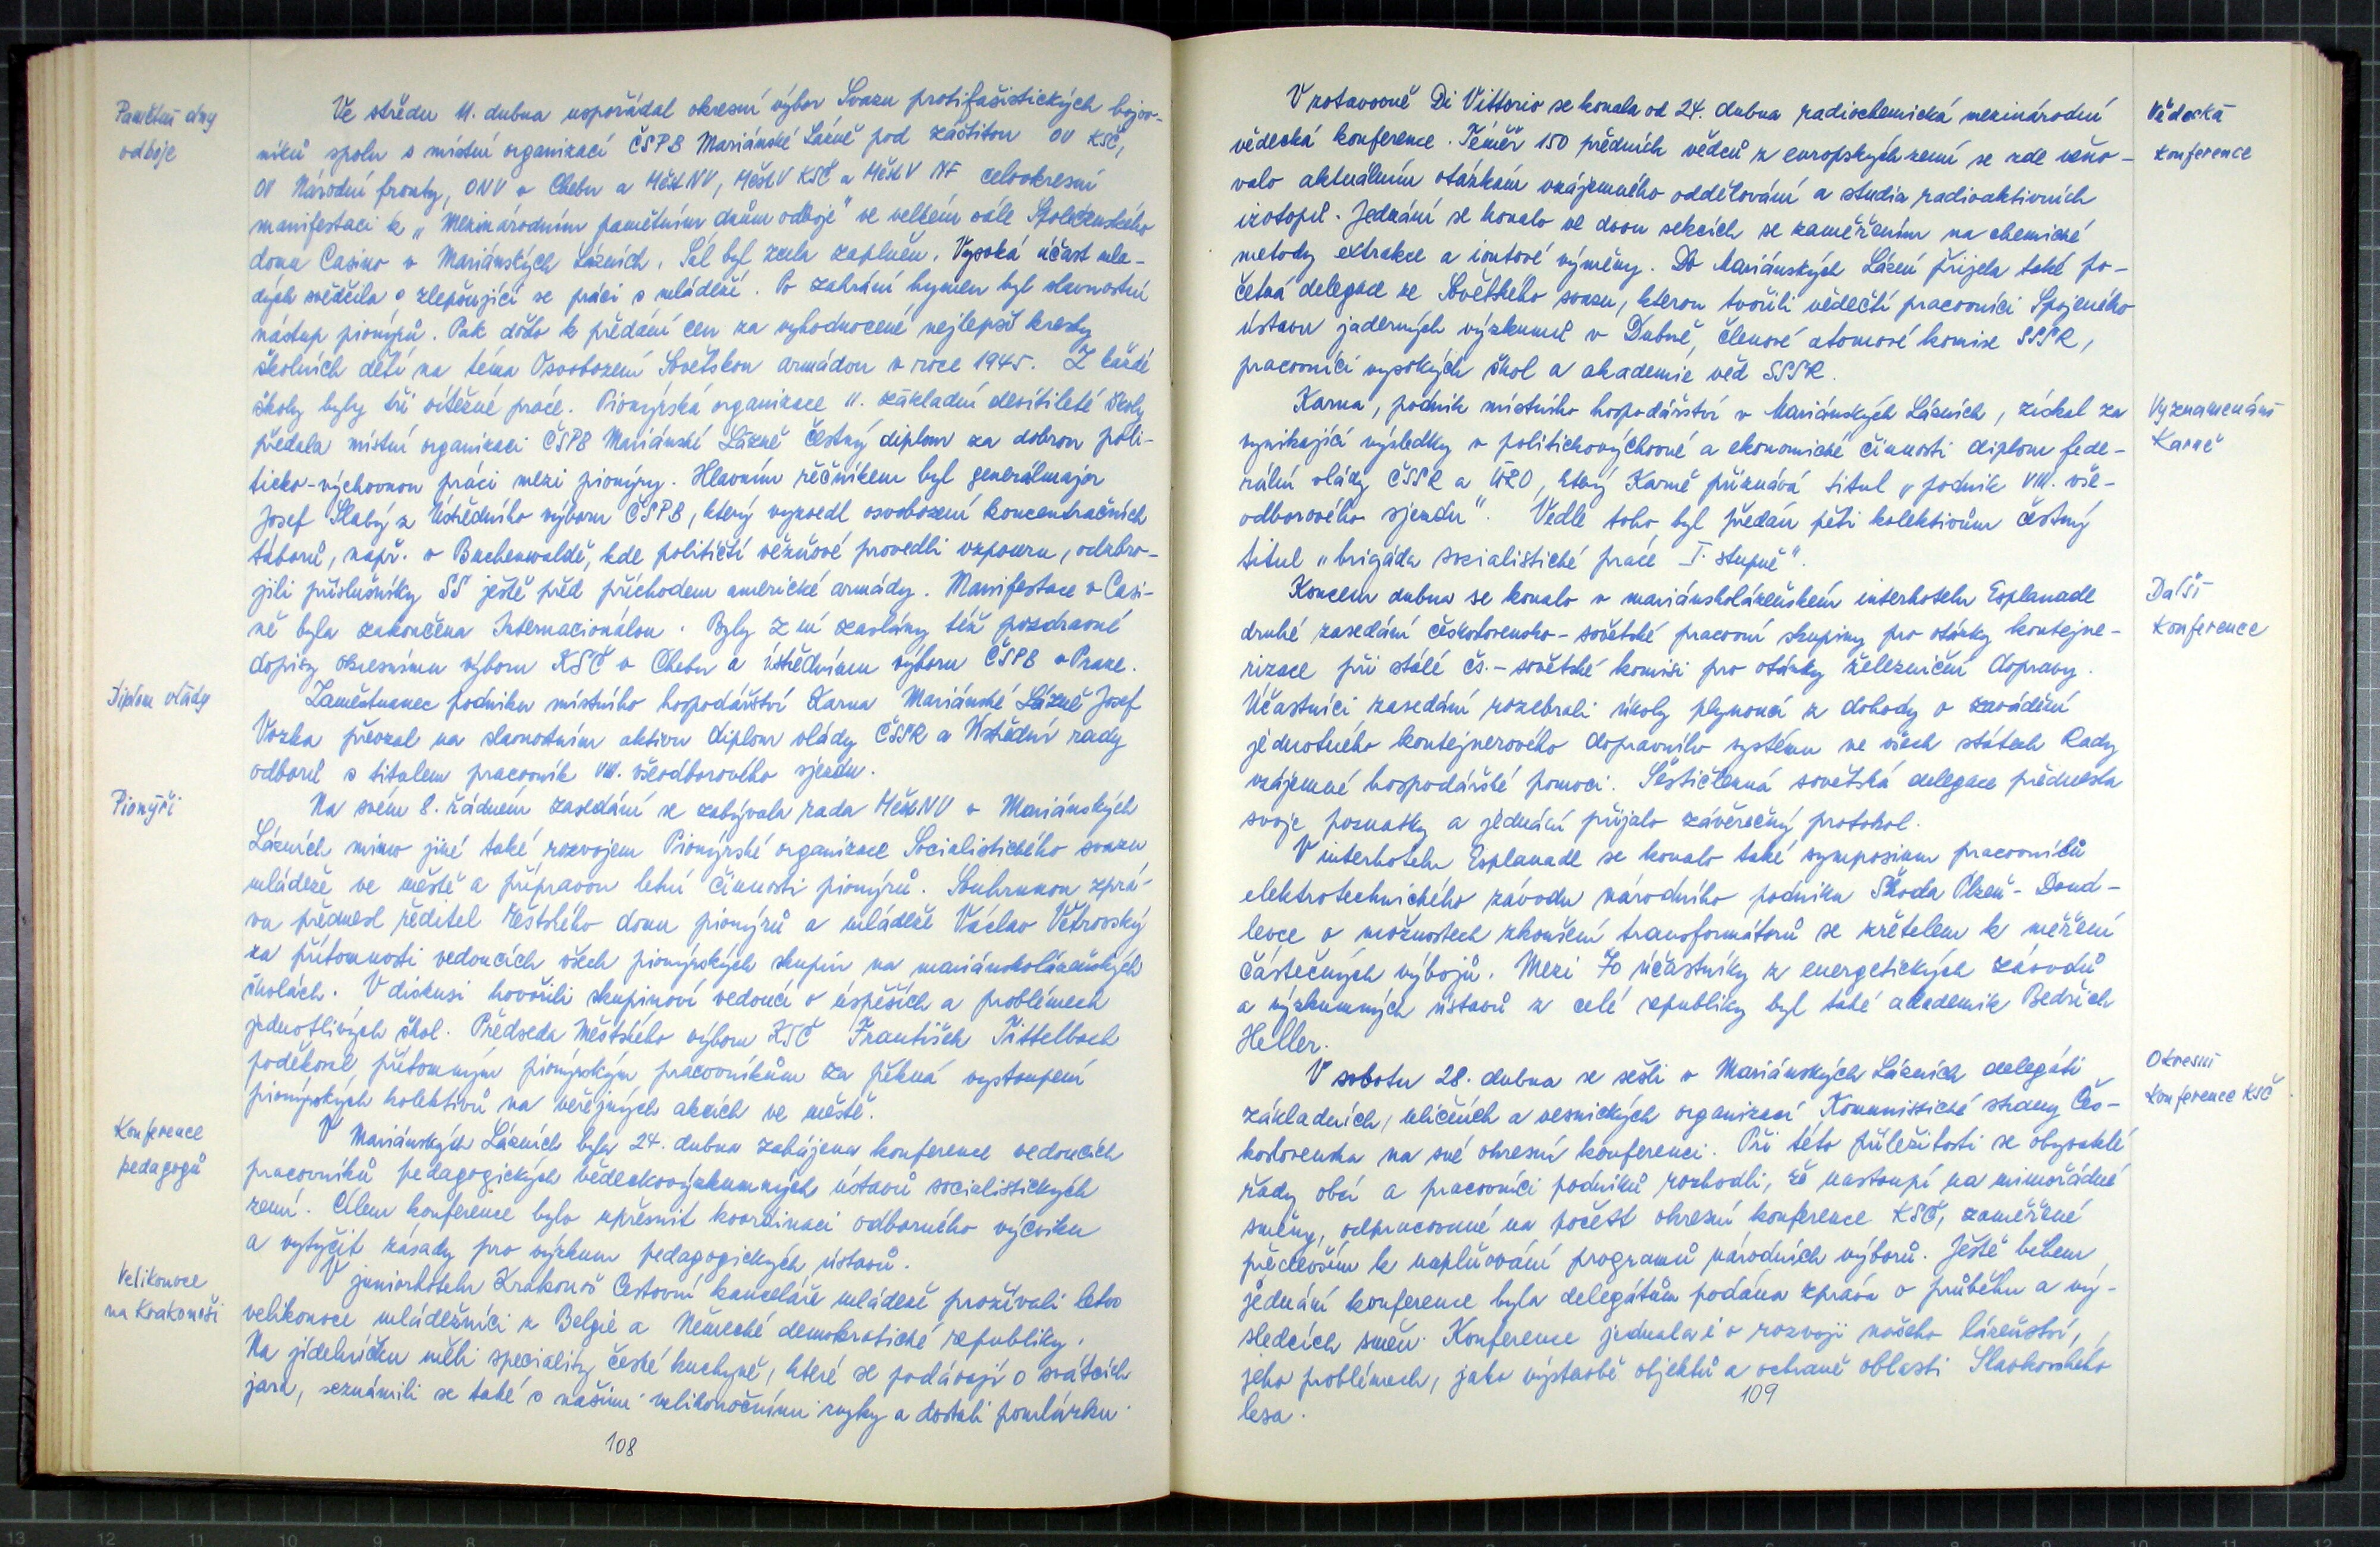 Památní dny
odboje
Ve středu 11. dubna uspořádal okresní výbor Svazu protifašistických bojov-
níků spolu s místní organizací ČSPB Mariánské Lázně pod záštitou OV KSČ,
OV Národní fronty, ONV v Chebu a MěstNV, MěstV KSČ a MěstV NF celookresní
manifestaci k „Mezinárodním památním dnům odboje" ve velkém sále Společenského
domu Casino v Mariánských Lázních. Sál byl zcela zaplněn. Vysoká účast mla-
dých svědčila o zlepšující se práci s mládeží. Po zahrání hymen byl slavnostní
nástup pionýrů. Pak došlo k předání cen za vyhodnocené nejlepší kresby
školních dětí na téma Osvobození Sovětskou armádou v roce 1945. Z každé
školy byly tři vítězné práce. Pionýrská organizace II. základní devítileté školy
předala místní organizaci ČSPB Mariánské Lázně čestný diplom za dobrou poli-
ticko-výchovnou práci mezi pionýry. Hlavním řečníkem byl generálmajor
Josef Slabý z Ústředního výboru ČSPB, který vyzvedl osvobození koncentračních
táborů, např. v Buchenwaldě, kde političtí vězňové provedli vzpouru, odzbro-
jili příslušníky SS ještě před příchodem americké armády. Manifestace v Casi-
ně byla zakončena Internacionálou. Byly z ní zaslány též pozdravné
dopisy okresnímu výboru KSČ v Chebu a ústřednímu výboru ČSPB v Praze.
Diplom vlády
Zaměstnanec podniku místního hospodářství Karna Mariánské Lázně Josef
Vozka převzal na slavnostním aktivu diplom vlády ČSSR a Ústřední rady
odborů s titulem pracovník VIII. všeodborového sjezdu.
Pionýři
Na svém 8. řádném zasedání se zabývala rada MěstNV v Mariánských
Lázních mimo jiné také rozvojem Pionýrské organizace Socialistického svazu
mládeže ve městě a přípravou letní činnosti pionýrů. Souhrnnou zprá-
vu přednesl ředitel Městského domu pionýrů a mládeže Václav Větrovský
za přítomnosti vedoucích všech pionýrských skupin na mariánskolázeňských
školách. V diskusi hovořili skupinoví vedoucí o úspěších a problémech
jednotlivých škol. Předseda Městského výboru KSČ František Tittelbach
poděkoval přítomným pionýrským pracovníkům za pěkná vystoupení
pionýrských kolektivů na veřejných akcích ve městě.
Konference
pedagogů
V Mariánských Lázních byla 24. dubna zahájena konference vedoucích
pracovníků pedagogických vědeckovýzkumných ústavů socialistických
zemí. Cílem konference bylo upřesnit koordinaci odborného výcviku
a vytyčit zásady pro výzkum pedagogických ústavů.
Velikonoce
na Krakonoši
V juniorhotelu Krakonoš Cestovní kanceláře mládeže prožívali letos
velikonoce mládežníci z Belgie a Německé demokratické republiky.
Na jídelníčku měli speciality české kuchyně, které se podávají o svátcích
jara, seznámili se také s našimi velikonočními zvyky a dostali pomlázku.
108
V zotavovně Di Vittorio se konala od 24. dubna radiochemická mezinárodní
vědecká konference. Téměř 150 předních vědců z evropských zemí se zde věno-
valo aktuálním otázkám vzájemného oddělování a studia radioaktivních
izotopů. Jednání se konalo ve dvou sekcích se zaměřením na chemické
metody extrakce a iontové výměny. Do Mariánských Lázní přijela také po-
četná delegace ze Sovětského svazu, kterou tvořili vědečtí pracovníci Spojeného
ústavu jaderných výzkumů v Dubně, členové atomové komise SSSR,
pracovníci vysokých škol a akademie věd SSSR.
Vědecká
konference
Karna, podnik místního hospodářství v Mariánských Lázních, získal za
vynikající výsledky v politickovýchovné a ekonomické činnosti diplom fede-
rální vlády ČSSR a ÚRO, který Karně přiznává titul „podnik VIII. vše-
odborového sjezdu". Vedle toho byl předán pěti kolektivům čestný
titul „brigáda socialistické práce I. stupně".
Vyznamenání
Karně
Koncem dubna se konalo v mariánskolázeňském interhotelu Esplanade
druhé zasedání československo-sovětské pracovní skupiny pro otázky kontejne-
rizace při stálé čs.-sovětské komisi pro otázky železniční dopravy.
Účastníci zasedání rozebrali úkoly plynoucí z dohody o zavádění
jednotného kontejnerového dopravního systému ve všech státech Rady
vzájemné hospodářské pomoci. Šestičlenná sovětská delegace přednesla
svoje poznatky a jednání přijalo závěrečný protokol.
Další
konference
V interhotelu Esplanade se konalo také symposium pracovníků
elektrotechnického závodu národního podniku Škoda Plzeň-Doud-
levce o možnostech zkoušení transformátorů se zřetelem k měření
částečných výbojů. Mezi 70 účastníky z energetických závodů
a výzkumných ústavů z celé republiky byl také akademik Bedřich
Heller.
V sobotu 28. dubna se sešli v Mariánských Lázních delegáti
základních, uličních a vesnických organizací Komunistické strany Čes-
koslovenska na své okresní konferenci. Při této příležitosti se obyvatelé
řady obcí a pracovníci podniků rozhodli, že nastoupí na mimořádné
směny, odpracované na počest okresní konference KSČ, zaměřené
především k naplňování programů národních výborů. Ještě během
jednání konference byla delegátům podána zpráva o průběhu a vý-
sledcích směn. Konference jednala i o rozvoji našeho lázeňství,
jeho problémech, jako výstavbě objektů a ochraně oblasti Slavkovského
lesa.
Okresní
konference KSČ
109
13 12 11 10 9 8 7